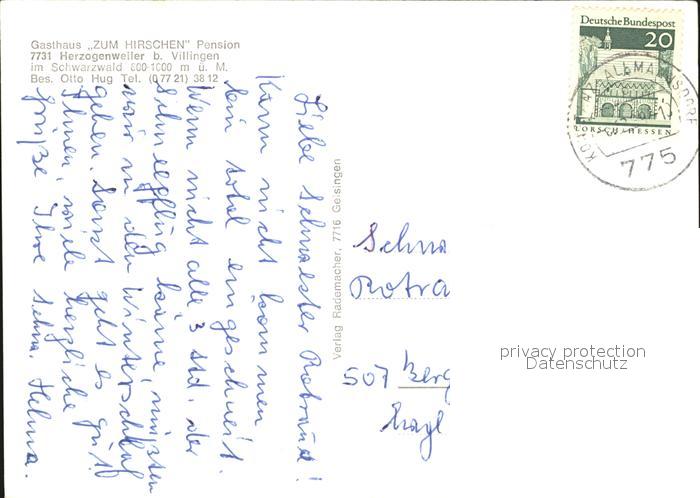 Gasthaus „ZUM HIRSCHEN" Pension
7731 Herzogenweiler b. Villingen
im Schwarzwald 800-1000 m ü. M.
Bes. Otto Hug Tel. (0 77 21) 38 12
Liebe Schwester Rotraud!
Kann nicht kommen
bin total eingeschneit.
Wenn nicht alle 3 Std. der
Schneepflug käme, müßten
wir in den Winterschlaf
gehen. Sonst geht es gut.
Ihnen, viele herzliche
Grüße Ihre Schw. Helma.
Verlag Rademacher, 7716 Geisingen
Deutsche Bundespost
20
LORSCH/HESSEN
ALLMANNSDORF
775
Schw
Rotra
507 Berg
privacy protection
Datenschutz